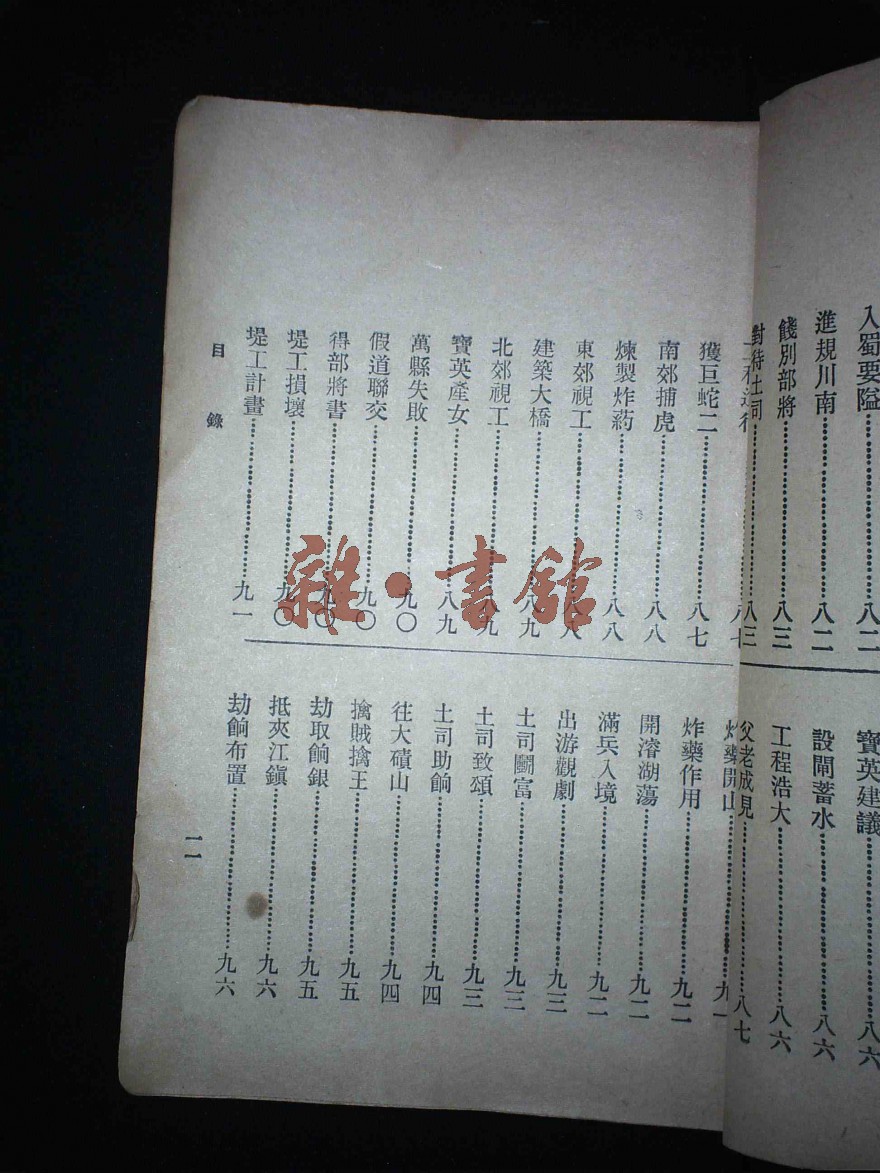 入蜀要隘……八二
進規川南……八二
餞別部將……八三
對待土司……八三
寶英建議……八六
設閘蓄水……八六
工程浩大……八六
父老成見……八七
獲巨蛇二……八七
南郊捕虎……八八
煉製炸葯……八八
東郊視工……八八
建築大橋……八九
北郊視工……八九
寶英產女……八九
萬縣失敗……九〇
假道聯交……九〇
得部將書……九〇
堤工損壞……九〇
堤工計畫……九一
炸藥開山……九一
炸藥作用……九二
開濬湖蕩……九二
滿兵入境……九二
出游觀劇……九三
土司鬭富……九三
土司致頌……九三
土司助餉……九四
往大磧山……九四
擒賊擒王……九五
劫取餉銀……九五
抵夾江鎭……九六
劫餉布置……九六
目錄
一一
雜·書館